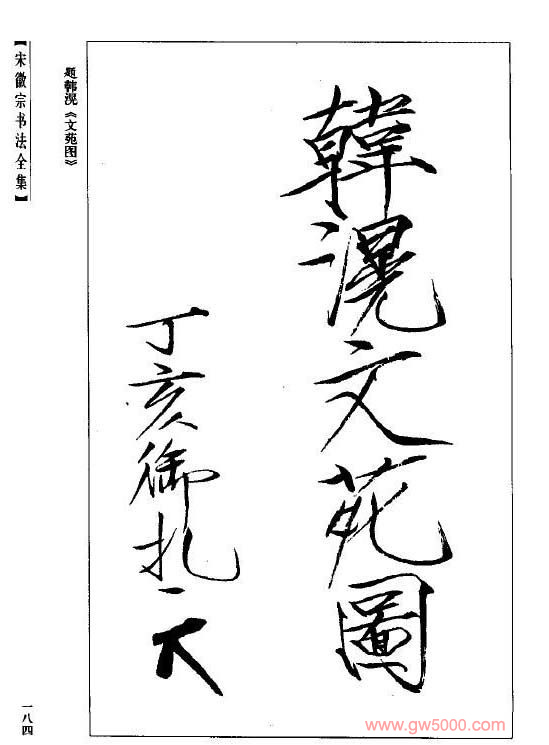 韓滉文苑圖
丁亥御札
題韩滉《文苑图》
【宋徽宗书法全集】
一八四
www.gw5000.com